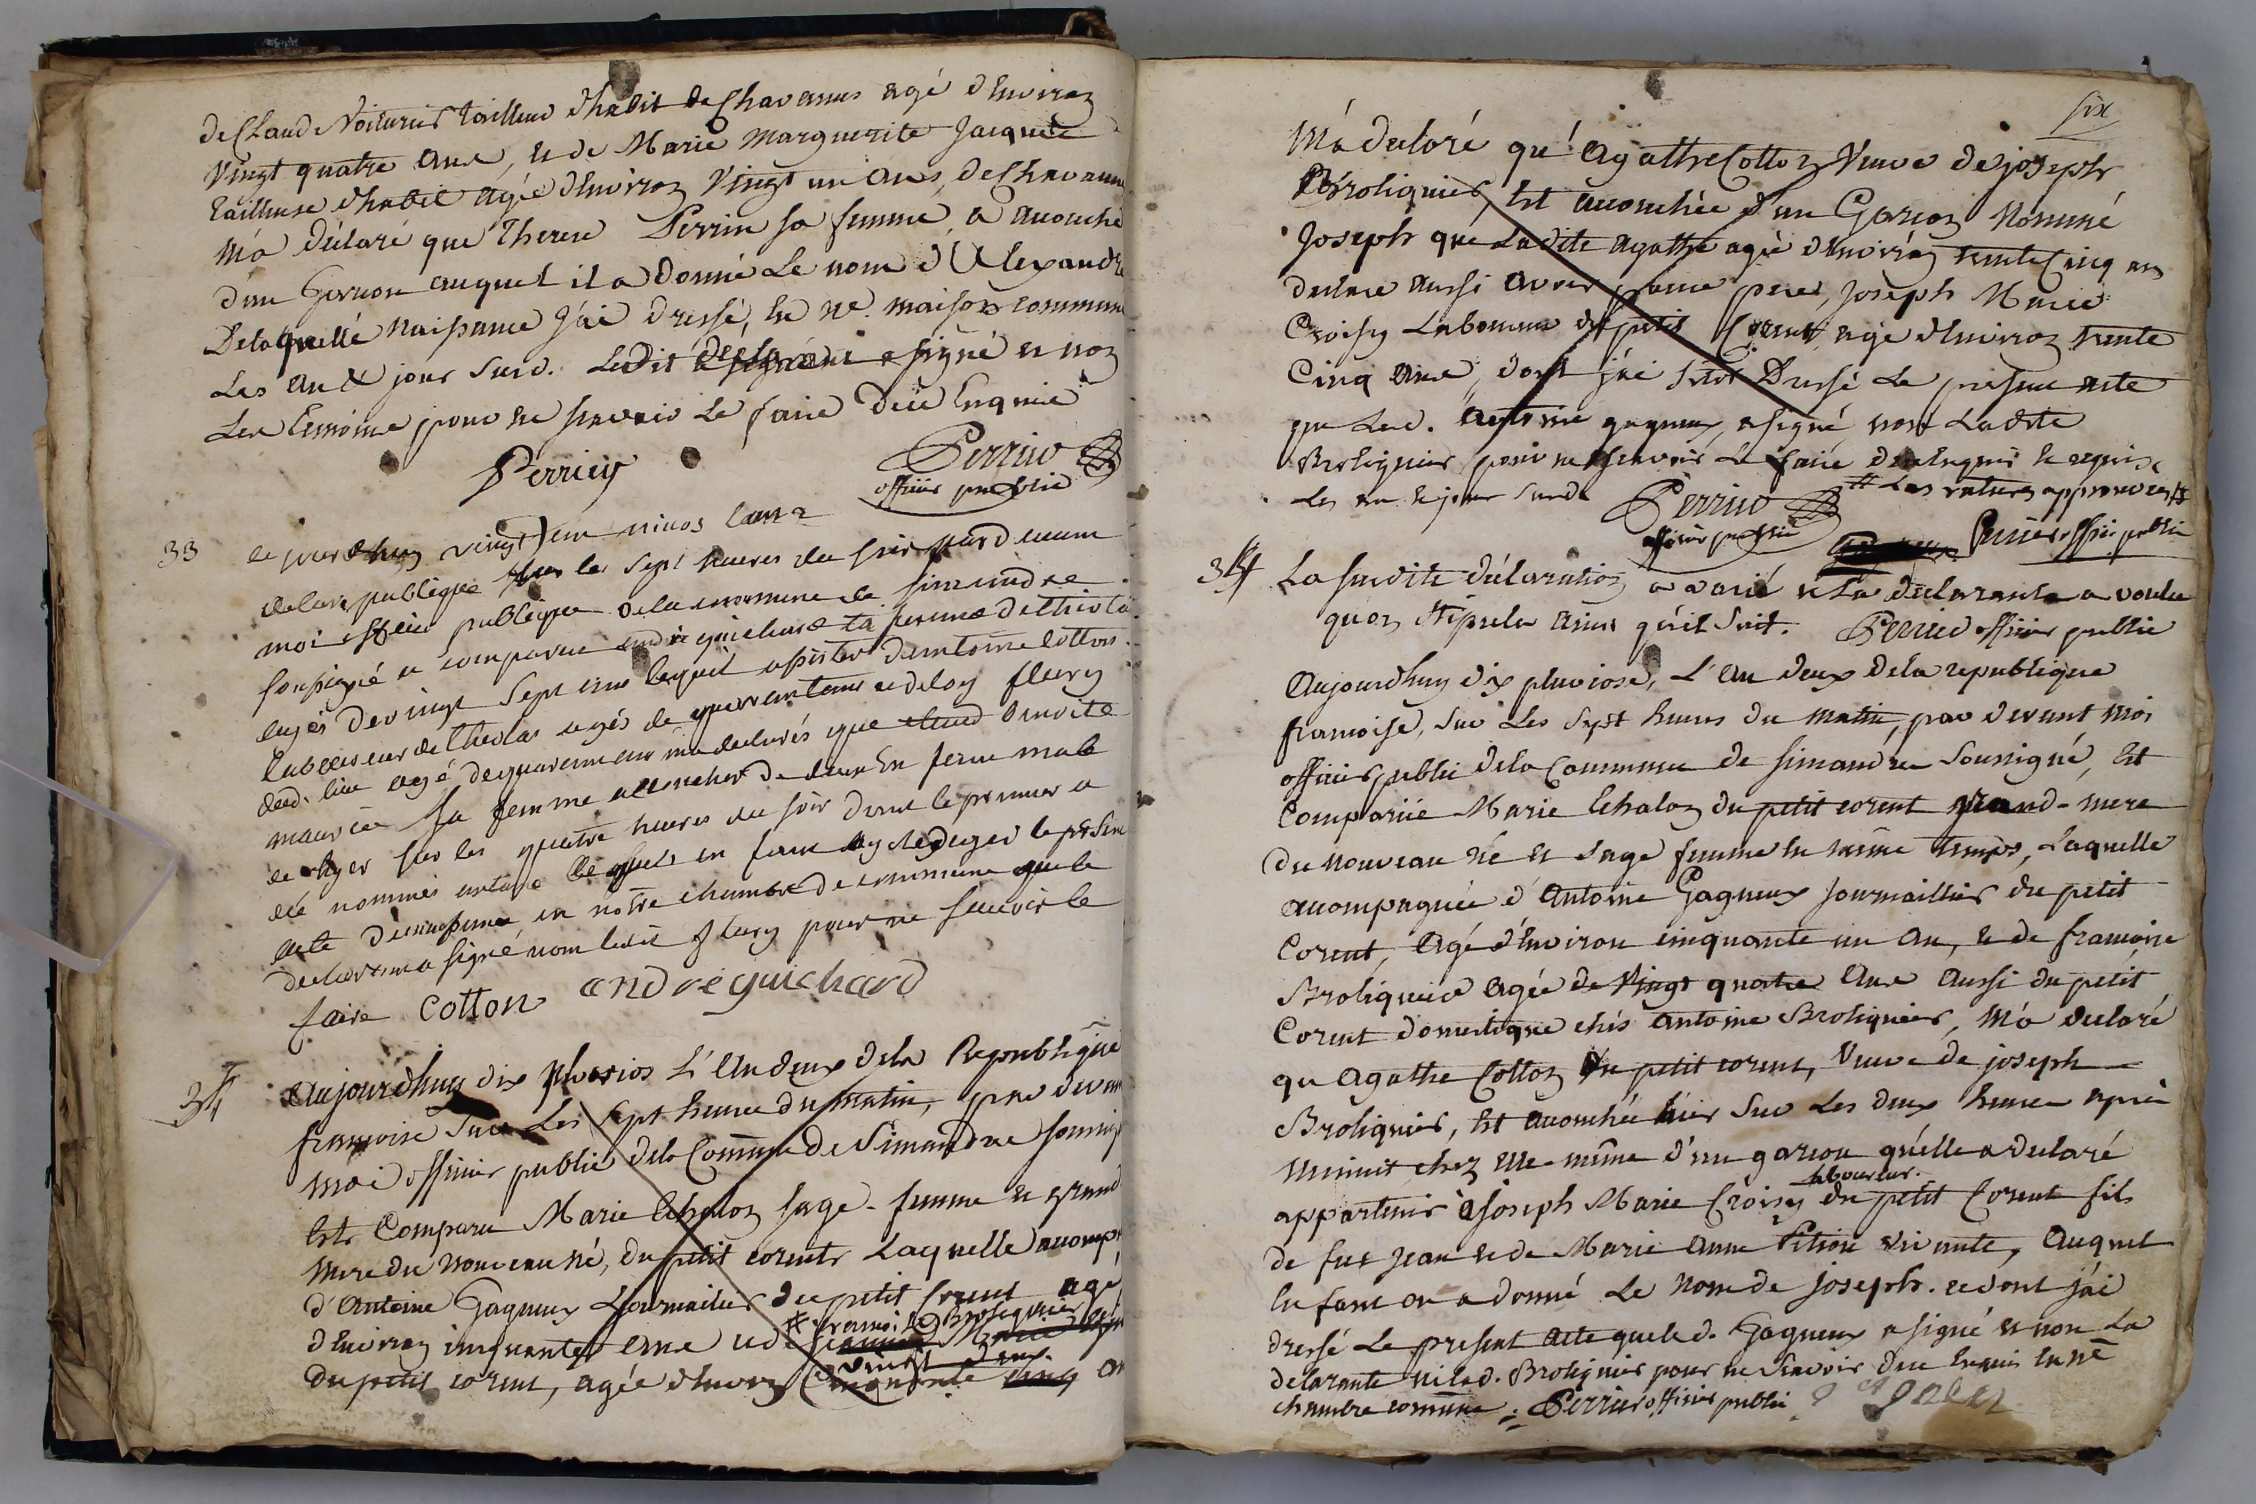 de Claud Voiturier tailleur d'habit de Chavannes agé d'Environ
Vingt quatre ans, et de Marie Marguerite Jacquet
tailleuse d'habit agée d'Environ Vingt un ans, de Chavanne
M'a déclaré que Therese Perrin sa femme, a accouché
d'un Garcon auquel il a Donné Le nom d'Alexandre
De laquelle Naissance J'ai dressé, en ne. maison commune
Les an & jour susd. Ledit declarant a signé et non
Les temoins pour ne scavoir Le faire de ce Enquis
Perrin
Perrin
officier public
33 aujourdhuy vingt un nivos lan 2
de la republique sur les sept heures du soir pardevant
moi officier publique de la commune de simandre
soussigné a comparu andré guichard de thiola
agés de vingt sept ans lequel assister d'antoine cotton
Laboureur de thiolas agés de quarante ans et de loy fleury
dud. lieu agé de quarante ans m'a declarés que
mauricia sa femme accoucher de deux En fens male
de hyer sur les quatre heures du soir dont le premier a
été nommés antoine rediger le présen
acte de naissance en notre chambre de commune que le
declarant a signé non ledit fleury pour ne scavoir le
faire Cotton andré guichard
34 Aujourdhuy dix pluvios L'An deux de la Republique
francoise sur Les sept heures du matin, par devan
moi officier public de la Commune de Simandre soussig
Est Comparu Marie Echalon sage-femme et grand
mere du nouveau né, du petit corent Laquelle accomp
d'Antoine Gagneux Journailier du petit Corent agé
# francoise Brolignier
d'Environ cinquante ans et de
vingt deux
du petit corent, agée d'Environ Cinquante cinq an
six
M'a declaré qu'Agathe Cotton Veuve de joseph
Broliquier, Est accouchée d'un Garcon Nommé
Joseph que Ladite agathe agée d'Environ trente Cinq ans
declare aussi avoir pour pere, Joseph Marie
Croisy Laboureur du petit Corent agé d'Environ trente
Cinq ans, dont j'ai Dressé Le present acte
que Led. Antoine gagneux, a signé non Ladite
Broliquier pour ne scavoir Le faire de ce Enquis et requis,
Les an et jour susd. # Les ratures approuvées #
Perrin
officier public
Perrier officier public
34 La susdite declaration a varié et La declarante a voulu
qu'on stipula ainsi qu'il suit. Perrier officier public
Aujourdhuy dix pluviose, L'an deux de la republique
francoise, sur Les sept heures du matin, par devant moi
officier public de la Commune de simandre soussigné, Est
Comparüe Marie Echalon du petit corent grand-mere
du nouveau né et sage femme en même temps, Laquelle
accompagnée d'Antoine Gagneux journaillier du petit
Corent, Agé d'Environ cinquante un an, et de francoise
Broliquier agée de Vingt quatre ans aussi du petit
Corent domestique chés Antoine Broliquier, M'a declaré
qu'Agathe Cotton du petit corent, Veuve de joseph
Broliquier, Est accouchée hier sur Les deux heures après
Minuit chez elle-même d'un garcon qu'elle a declaré
laboureur.
appartenir à joseph Marie Croisy du petit Corent fils
de fut Jean et de Marie Anne Pition vivante, Auquel
Enfant on a donné Le Nom de joseph. et dont j'ai
dressé Le present acte que led. Gagneux a signé et non La
delarante ni lad. Broliquier pour ne scavoir de ce Enquis En ne
chambre commune. Perrier officier public